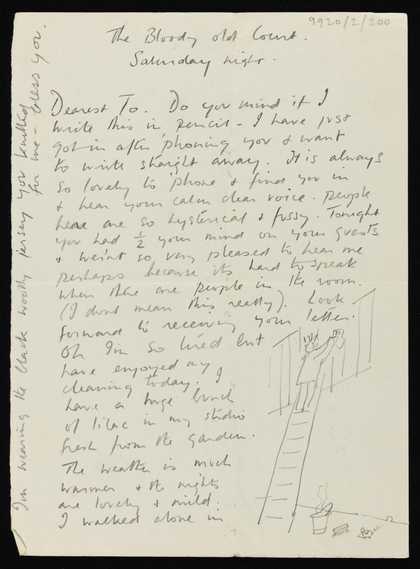 9920/2/200
The Bloody old Court.
Saturday night.
Dearest To. Do you mind if I
write this in pencil - I have just
got in after 'phoning you & want
to write straight away. It is always
so lovely to 'phone & find you in
& hear your calm clear voice. people
here are so hysterical & fussy. Tonight
you had ½ your mind on your guests
& weren't so very pleased to hear me
perhaps because its hard to speak
when there are people in the room.
(I dont mean this really). Look
forward to receiving your letter.
Oh I'm so tired but
have enjoyed my
cleaning today. I
have a huge bunch
of lilac in my studio
fresh from the garden.
The weather is much
warmer & the nights
are lovely & mild.
I walked alone in
I'm wearing the black woolly jersey you knitted
for me - bless you.